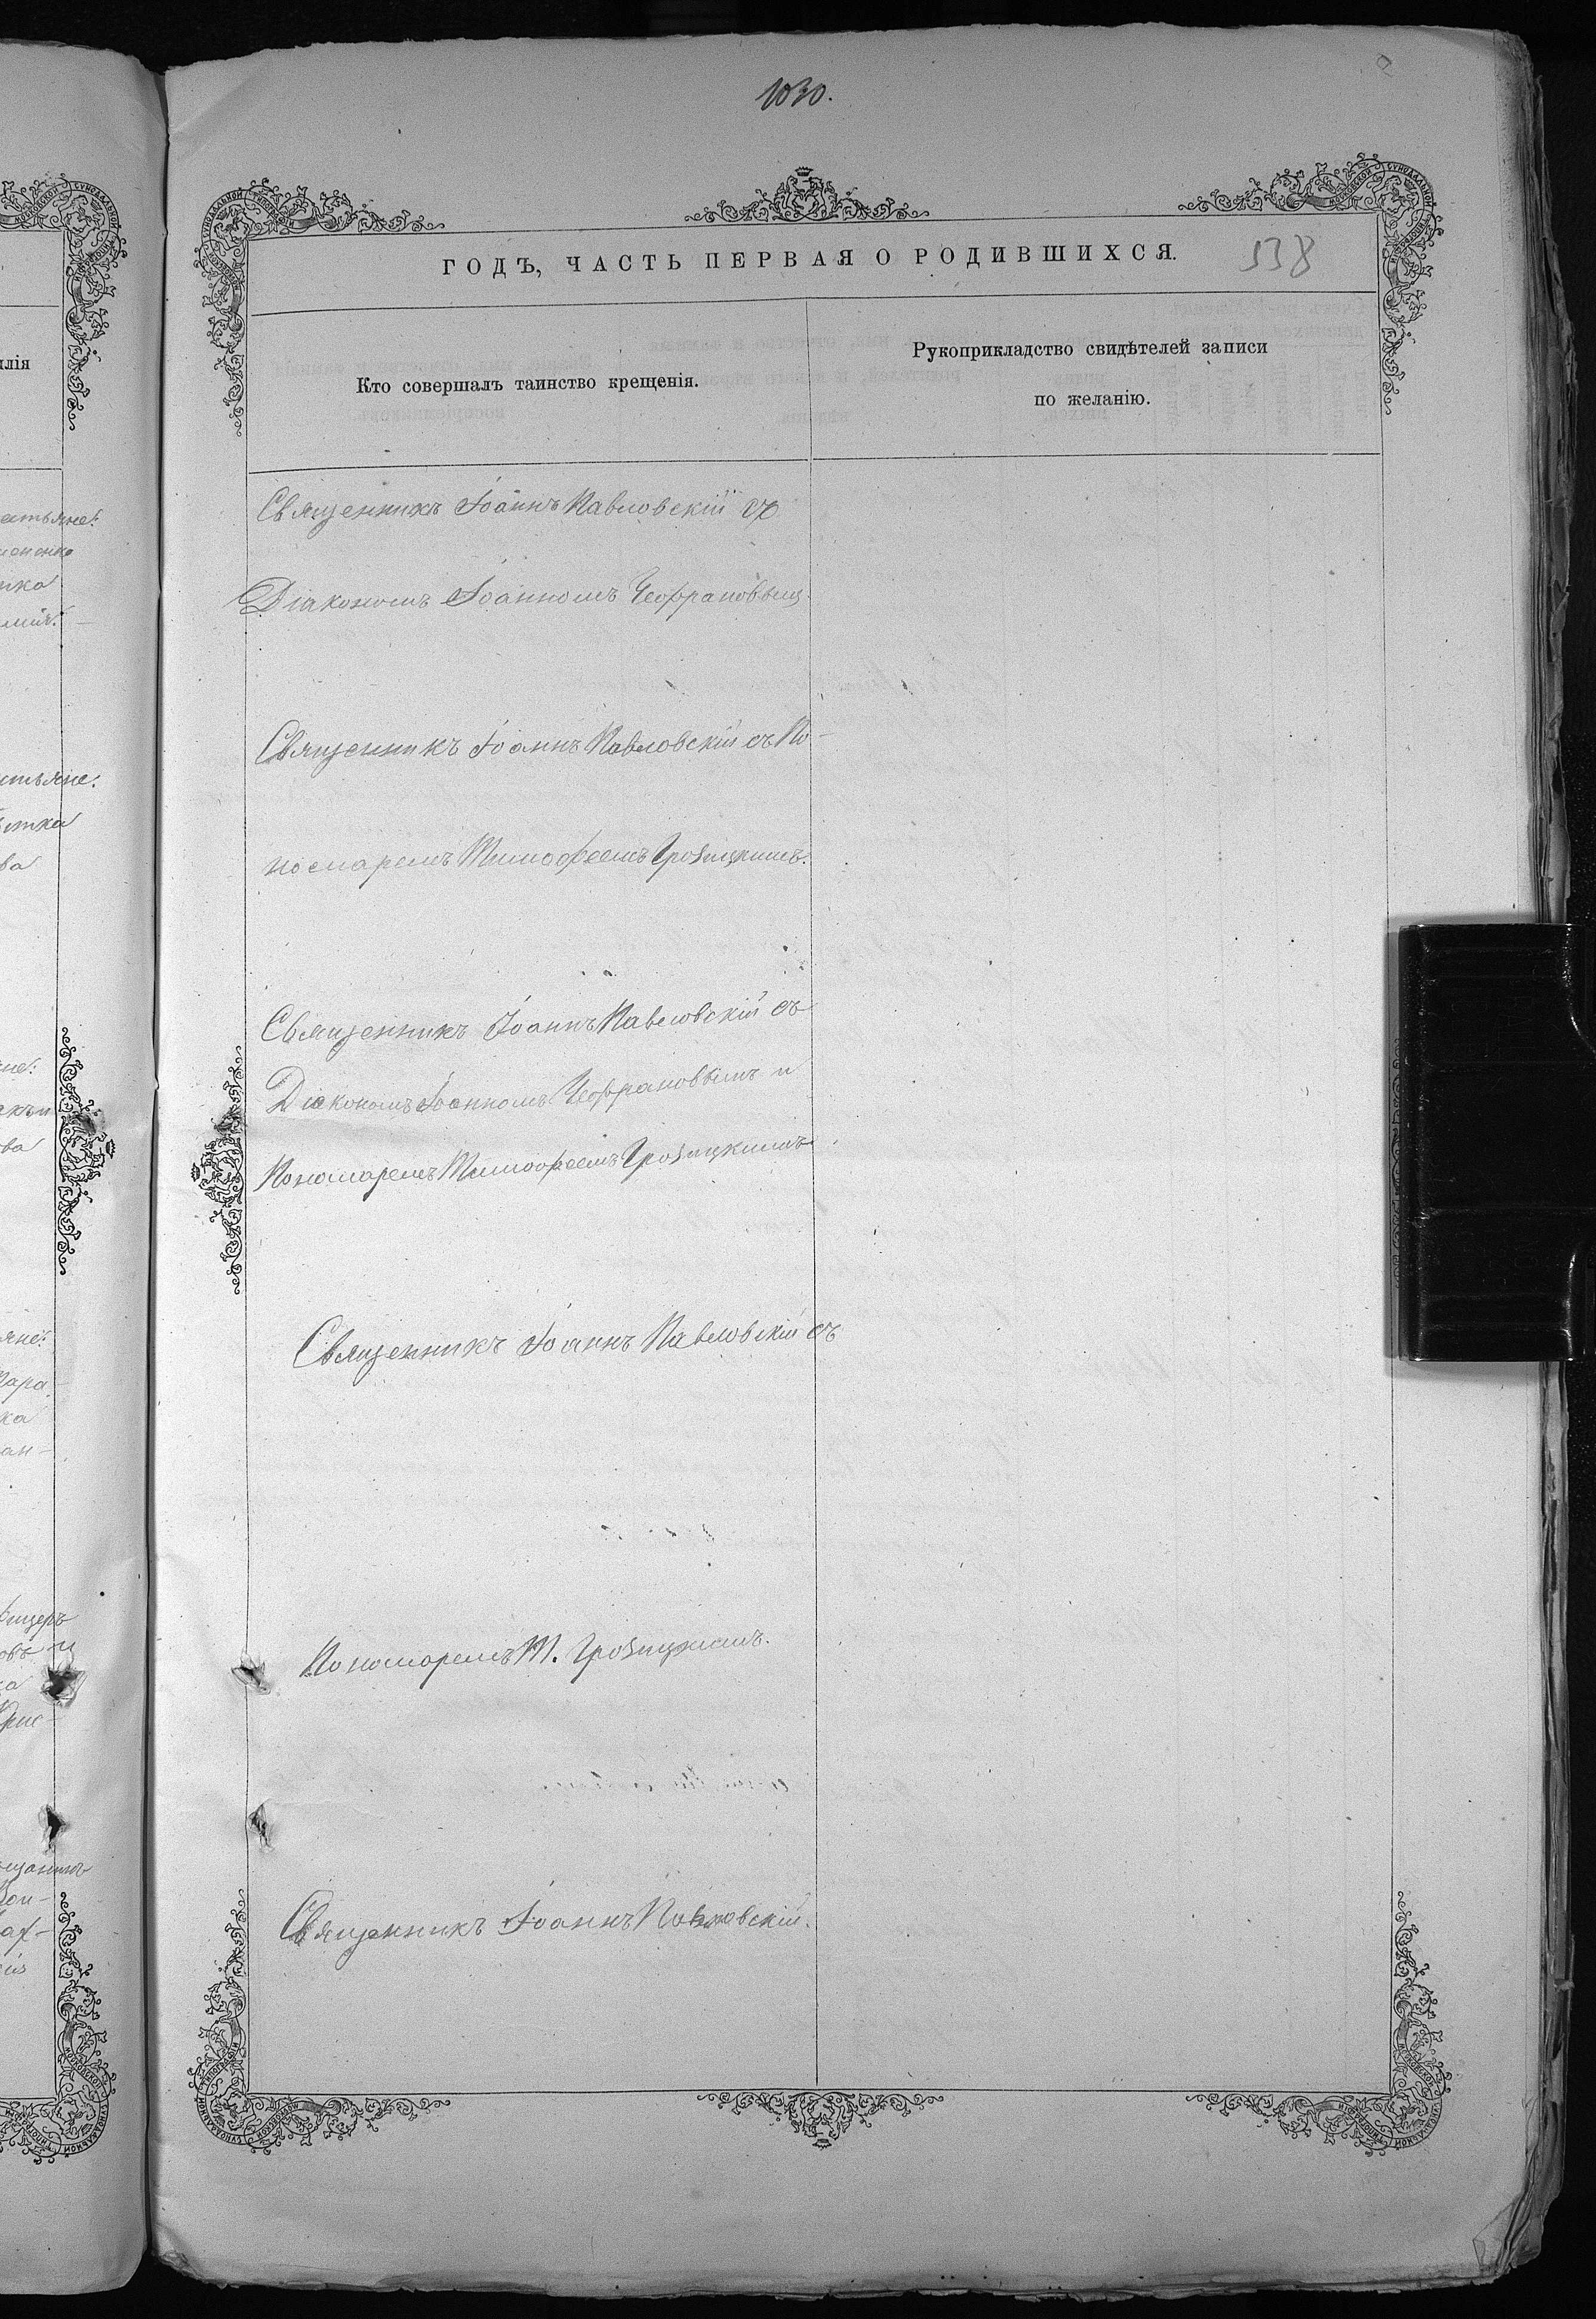 1030.
ГОДЪ, ЧАСТЬ ПЕРВАЯ О РОДИВШИХСЯ.
538
Кто совершалъ таинство крещенія.
Рукоприкладство свидѣтелей записи
по желанію.
Священникъ Іоаннъ Павловскій съ
Діакономъ Іоанномъ
Священникъ Іоаннъ Павловскій съ По-
номаремъ Тимофеемъ Грозицкимъ.
Священникъ Іоаннъ Павловскій съ
Діакономъ Іоанномъ и
Пономаремъ Тимофеемъ Грозицкимъ
Священникъ Іоаннъ Павловскій съ
Пономаремъ Т. Грозицкимъ.
Священникъ Іоаннъ Павловскій.